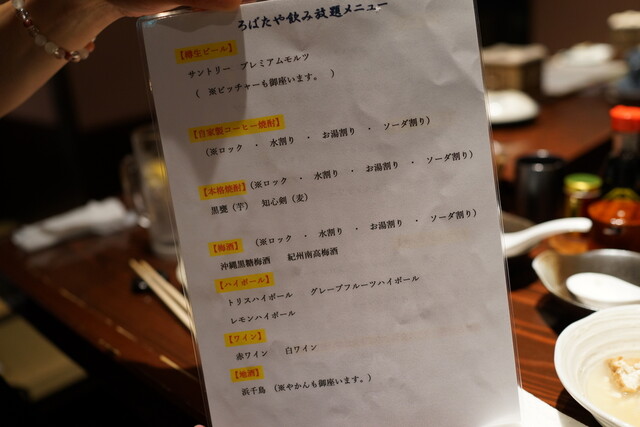 ろばたや飲み放題メニュー
【樽生ビール】
サントリー プレミアムモルツ
( ※ピッチャーも御座います。 )
【自家製コーヒー焼酎】
(※ロック ・ 水割り ・ お湯割り ・ ソーダ割り)
【本格焼酎】(※ロック ・ 水割り ・ お湯割り ・ ソーダ割り)
黒甕(芋) 知心剣(麦)
【梅酒】 (※ロック ・ 水割り ・ お湯割り ・ ソーダ割り)
沖縄黒糖梅酒 紀州南高梅酒
【ハイボール】
トリスハイボール グレープフルーツハイボール
レモンハイボール
【ワイン】
赤ワイン 白ワイン
【地酒】
浜千鳥 (※やかんも御座います。)